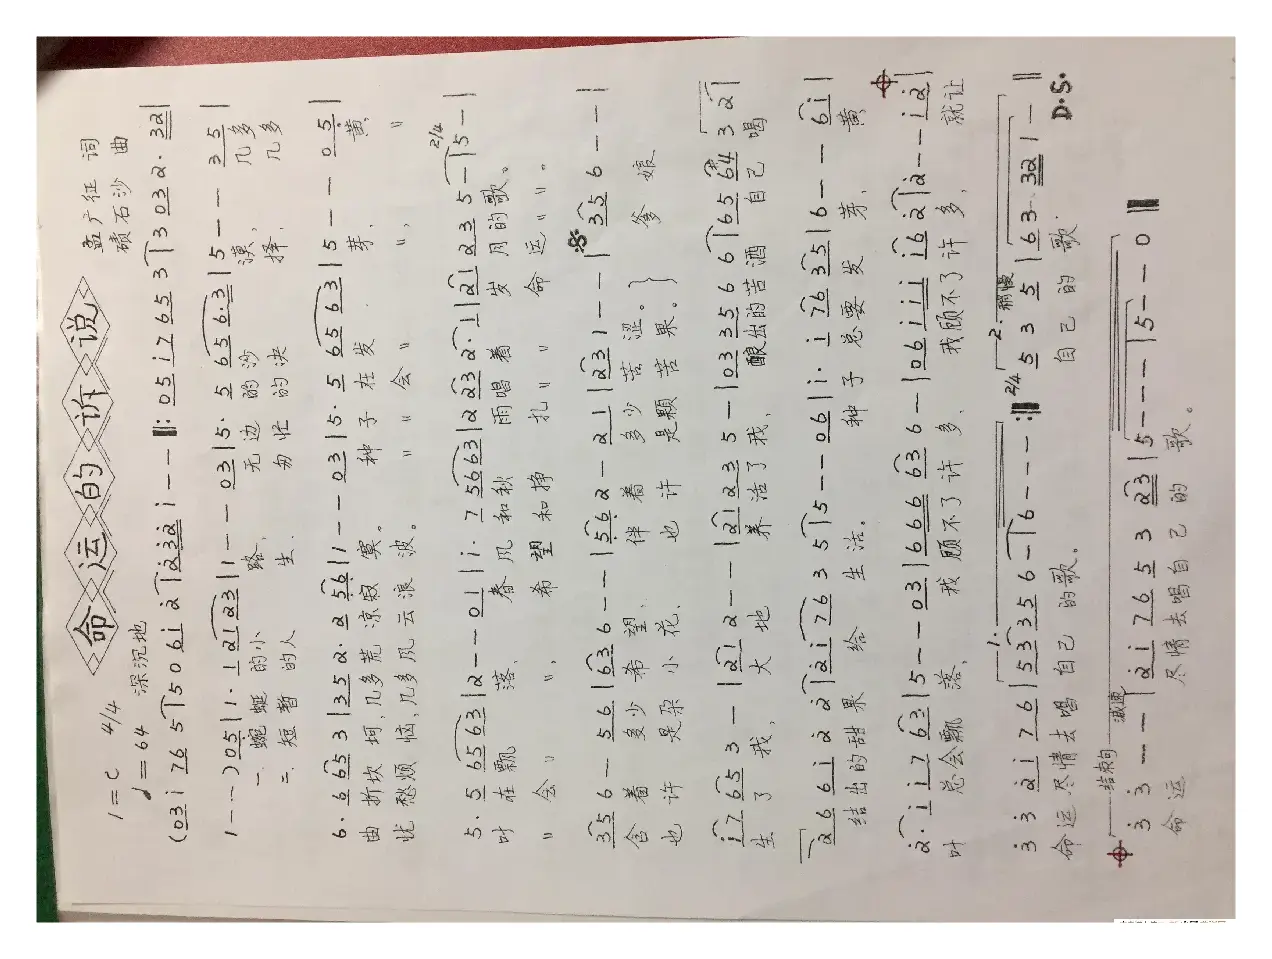 命运的诉说
1=C 4/4
♩=64 深沉地
孟广征 词
碛石沙 曲
(03i 765 | 506i2 | 2321 --- ‖: 05i7653 | 3032·32 |
1--) 05 | 1·12123 | 1--03 | 5·5656·3 | 5---35 |
一、蜿蜒的小路, 无边的沙漠, 几多
二、短暂的人生, 匆忙的决择, 几多
6·6653 | 352·256 | 1--03 | 5·56563 | 5--05 |
曲折坎坷,几多荒凉寂寞。 种子在发芽, 黄
忧愁烦恼,几多风云浪波。 〃〃会〃〃, 〃
5·56563 | 2--01 | i·75663 | 2232·1 | 21235- | 5- |
叶在飘落, 春风和秋雨唱着岁月的歌。
〃会〃〃, 希望和挣扎〃〃命运〃〃。
356-56 | 636-- | 562-21 | 231-- | 356-- |
含着多少希望, 伴着多少苦涩。 爹娘
也许是朵小花, 也许是颗苦果。
i7653- | 212-- | 21235- | 033566 | 656432 |
生了我, 大地养活了我, 酿出的苦酒自己喝
266i22 | 2i7635 | 5--06 | i·i7635 | 6--6i |
结出的甜果给生活。 种子总要发芽, 黄
2·ii763 | 5--03 | 666636- | 06iiii62 | 2--i2 |
叶总会飘落, 我顾不了许多, 我顾不了许多, 就让
1. 2/4 2. 稍慢
332i76 | 533356- | 6--- :‖ 5535 | 63·321- ‖
命运尽情去唱自己的歌。 自己的歌.
D.S.
结束句 减速
33--- | 2i765323 | 5--- | 5--0 ‖
命运 尽情去唱自己的歌。